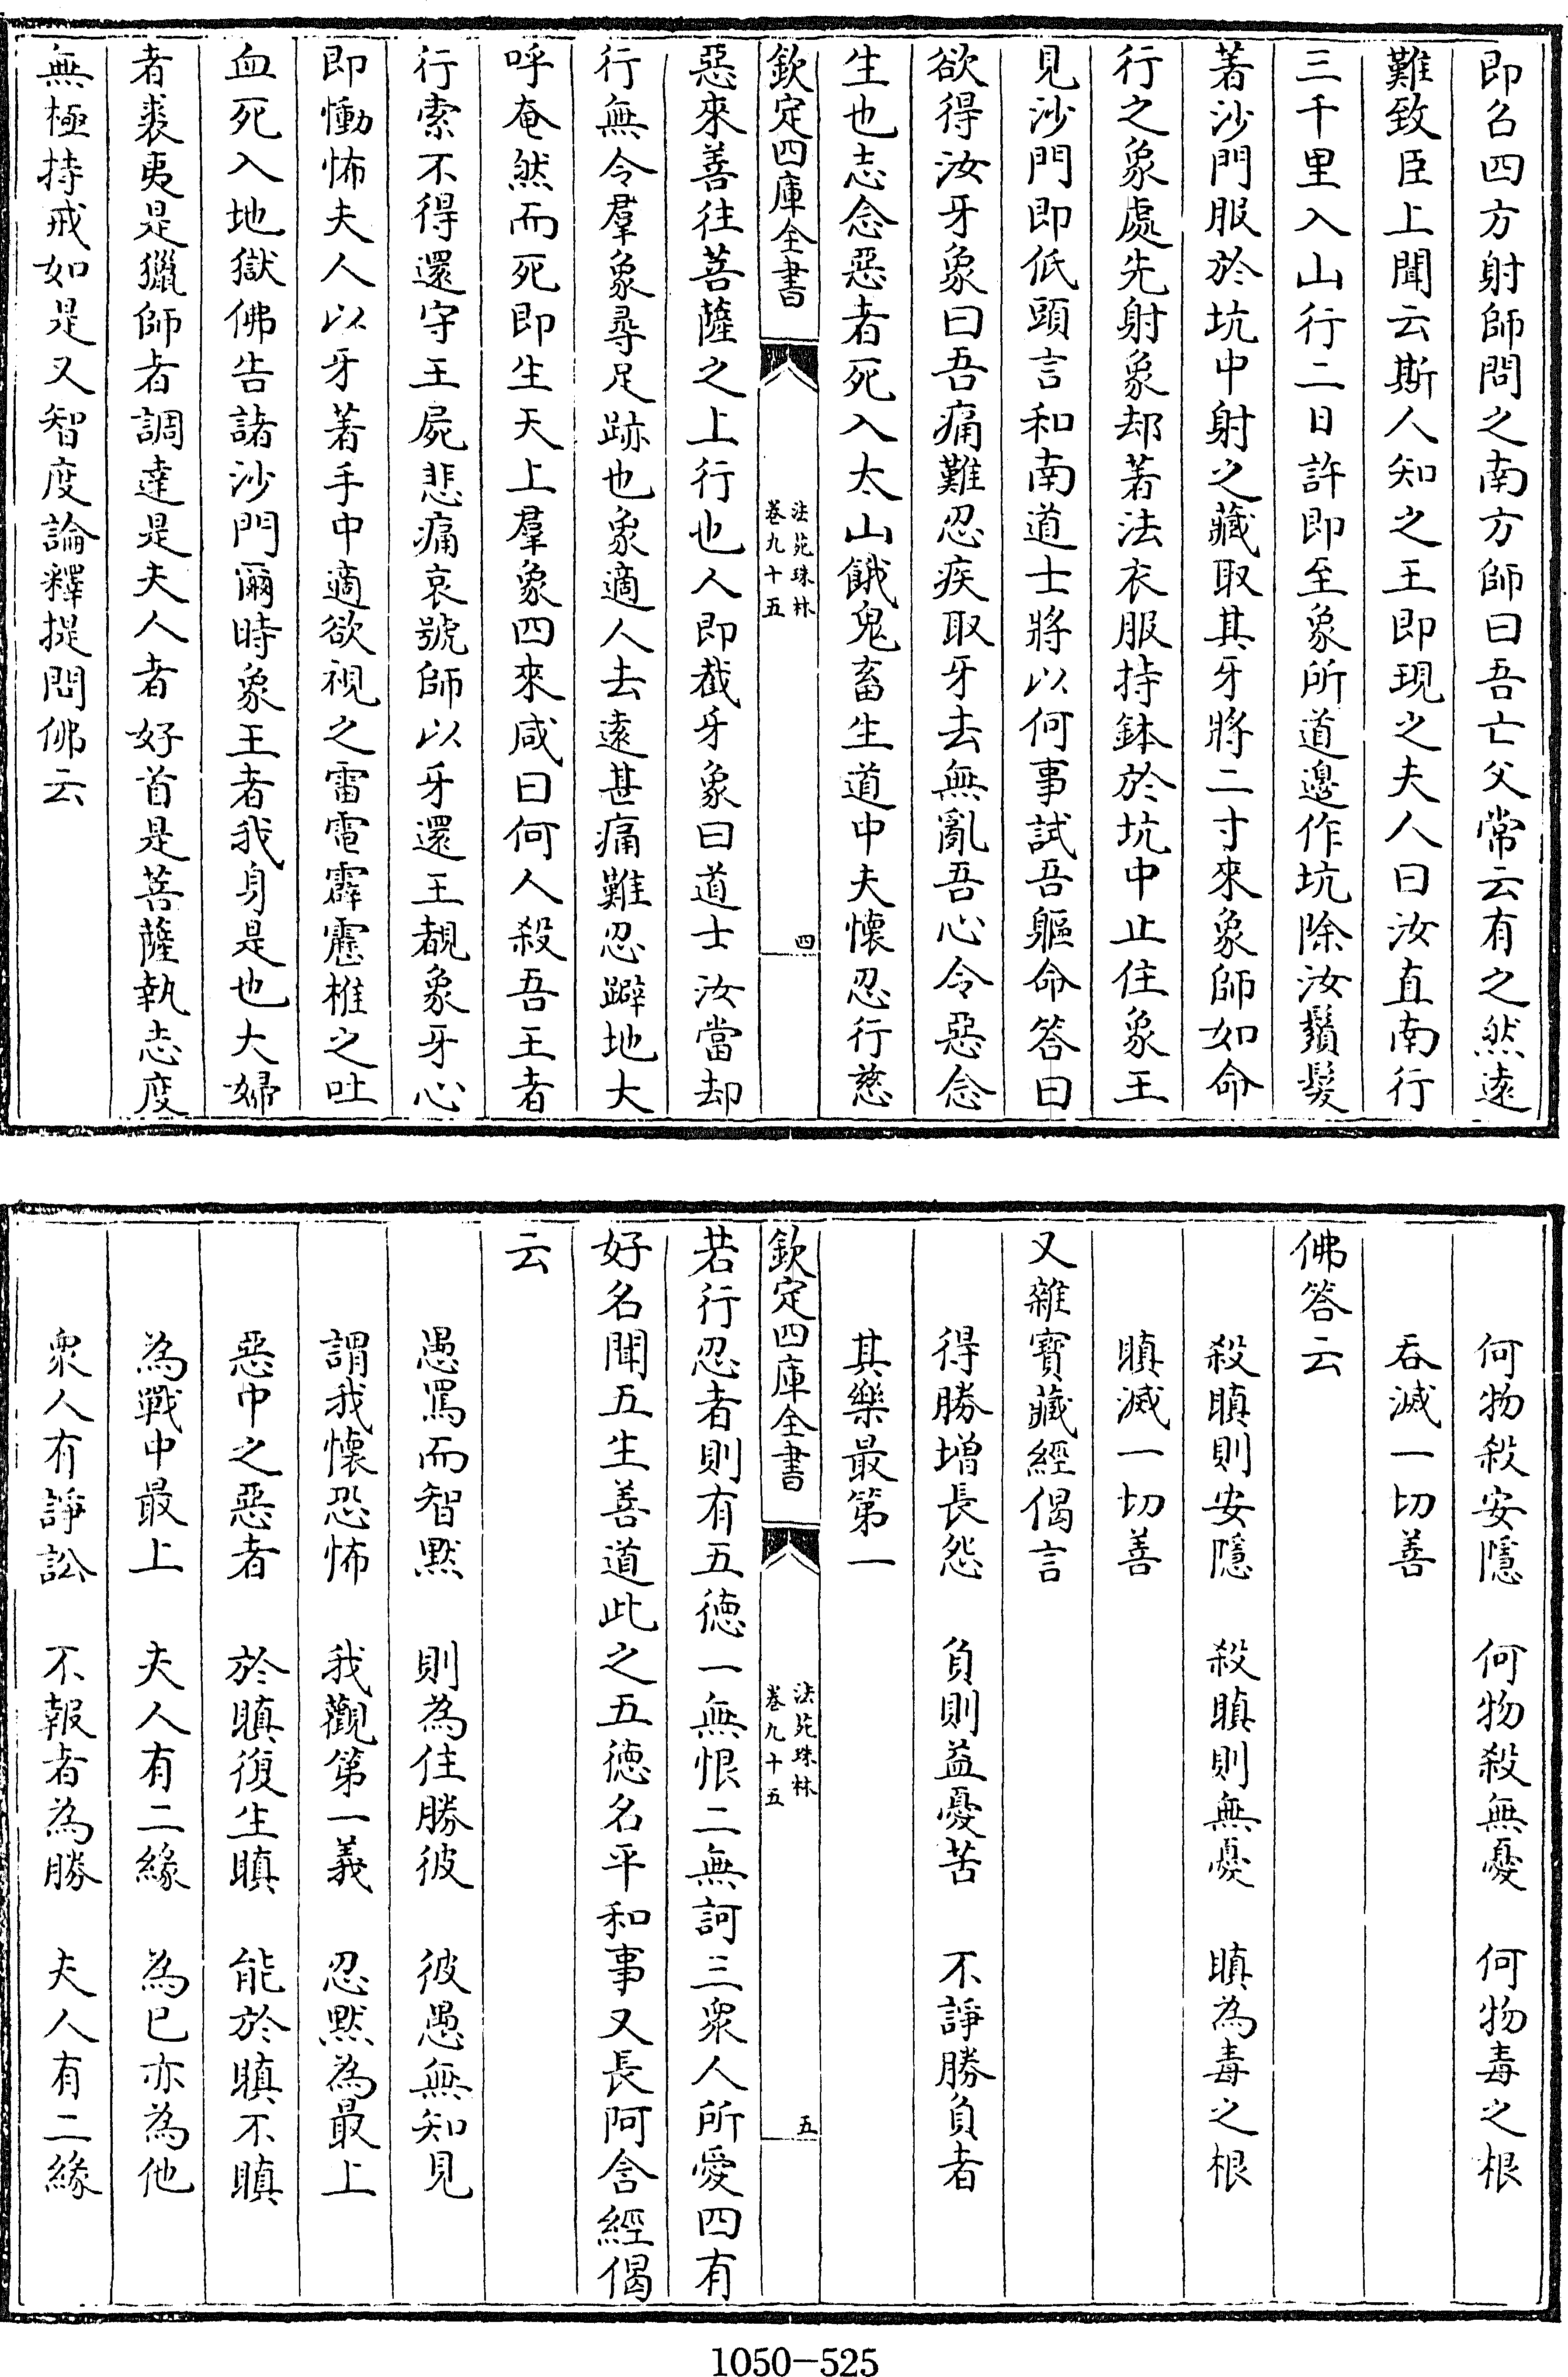 即召四方射師問之南方師曰吾亡父常云有之然遠
難致臣上聞云斯人知之王即現之夫人曰汝直南行
三千里入山行二日許即至象所道邊作坑除汝鬚髮
著沙門服於坑中射之藏取其牙將二寸來象師如命
行之象處先射象却著法衣服持鉢於坑中止住象王
見沙門即低頭言和南道士將以何事試吾軀命答曰
欲得汝牙象曰吾痛難忍疾取牙去無亂吾心令惡念
生也志念惡者死入太山餓鬼畜生道中夫懷忍行慈
欽定四庫全書
法苑珠林
卷九十五
四
惡來善往菩薩之上行也人即截牙象曰道士汝當却
行無令羣象尋足跡也象適人去遠甚痛難忍躃地大
呼奄然而死即生天上羣象四來咸曰何人殺吾王者
行索不得還守王屍悲痛哀號師以牙還王覩象牙心
即慟怖夫人以牙著手中適欲視之雷電霹靂椎之吐
血死入地獄佛告諸沙門爾時象王者我身是也大婦
者裘夷是獵師者調達是夫人者好首是菩薩執志度
無極持戒如是又智度論釋提問佛云
何物殺安隱　何物殺無憂　何物毒之根
吞滅一切善
佛答云
殺瞋則安隱　殺瞋則無憂　瞋為毒之根
瞋滅一切善
又雜寶藏經偈言
得勝增長怨　負則益憂苦　不諍勝負者
其樂最第一
欽定四庫全書
法苑珠林
卷九十五
五
若行忍者則有五德一無恨二無訶三衆人所愛四有
好名聞五生善道此之五德名平和事又長阿含經偈
云
愚罵而智默　則為住勝彼　彼愚無知見
謂我懷恐怖　我觀第一義　忍默為最上
惡中之惡者　於瞋復生瞋　能於瞋不瞋
為戰中最上　夫人有二緣　為已亦為他
衆人有諍訟　不報者為勝　夫人有二緣
1050-525